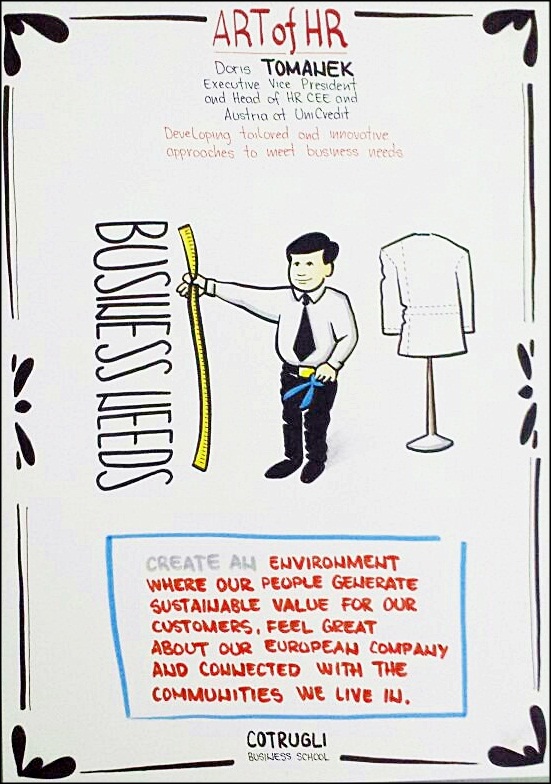 ART of HR
Doris TOMANEK
Executive Vice President
and Head of HR CEE and
Austria at UniCredit
Developing tailored and innovative
approaches to meet business needs
BUSINESS NEEDS
CREATE AN ENVIRONMENT
WHERE OUR PEOPLE GENERATE
SUSTAINABLE VALUE FOR OUR
CUSTOMERS, FEEL GREAT
ABOUT OUR EUROPEAN COMPANY
AND CONNECTED WITH THE
COMMUNITIES WE LIVE IN.
COTRUGLI
BUSINESS SCHOOL